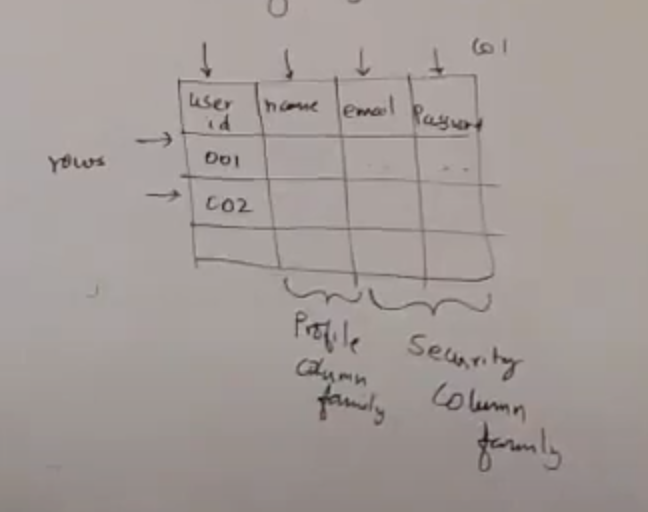 col
user id
name
email
Password
rows
001
002
Profile
column
family
Security
Column
family